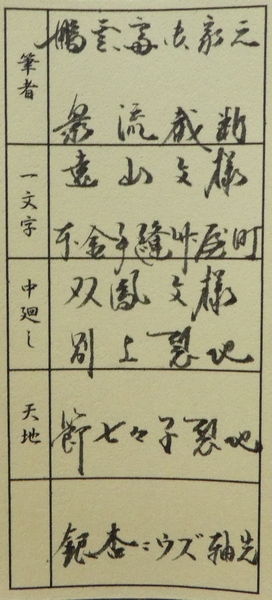 筆者
鵬雲斎お家元
衆流截断
一文字
遠山文様
本金手縫竹屋町
中廻し
双鳳文様
別上裂地
天地
節七々子裂地
銀杏ニウズ軸先